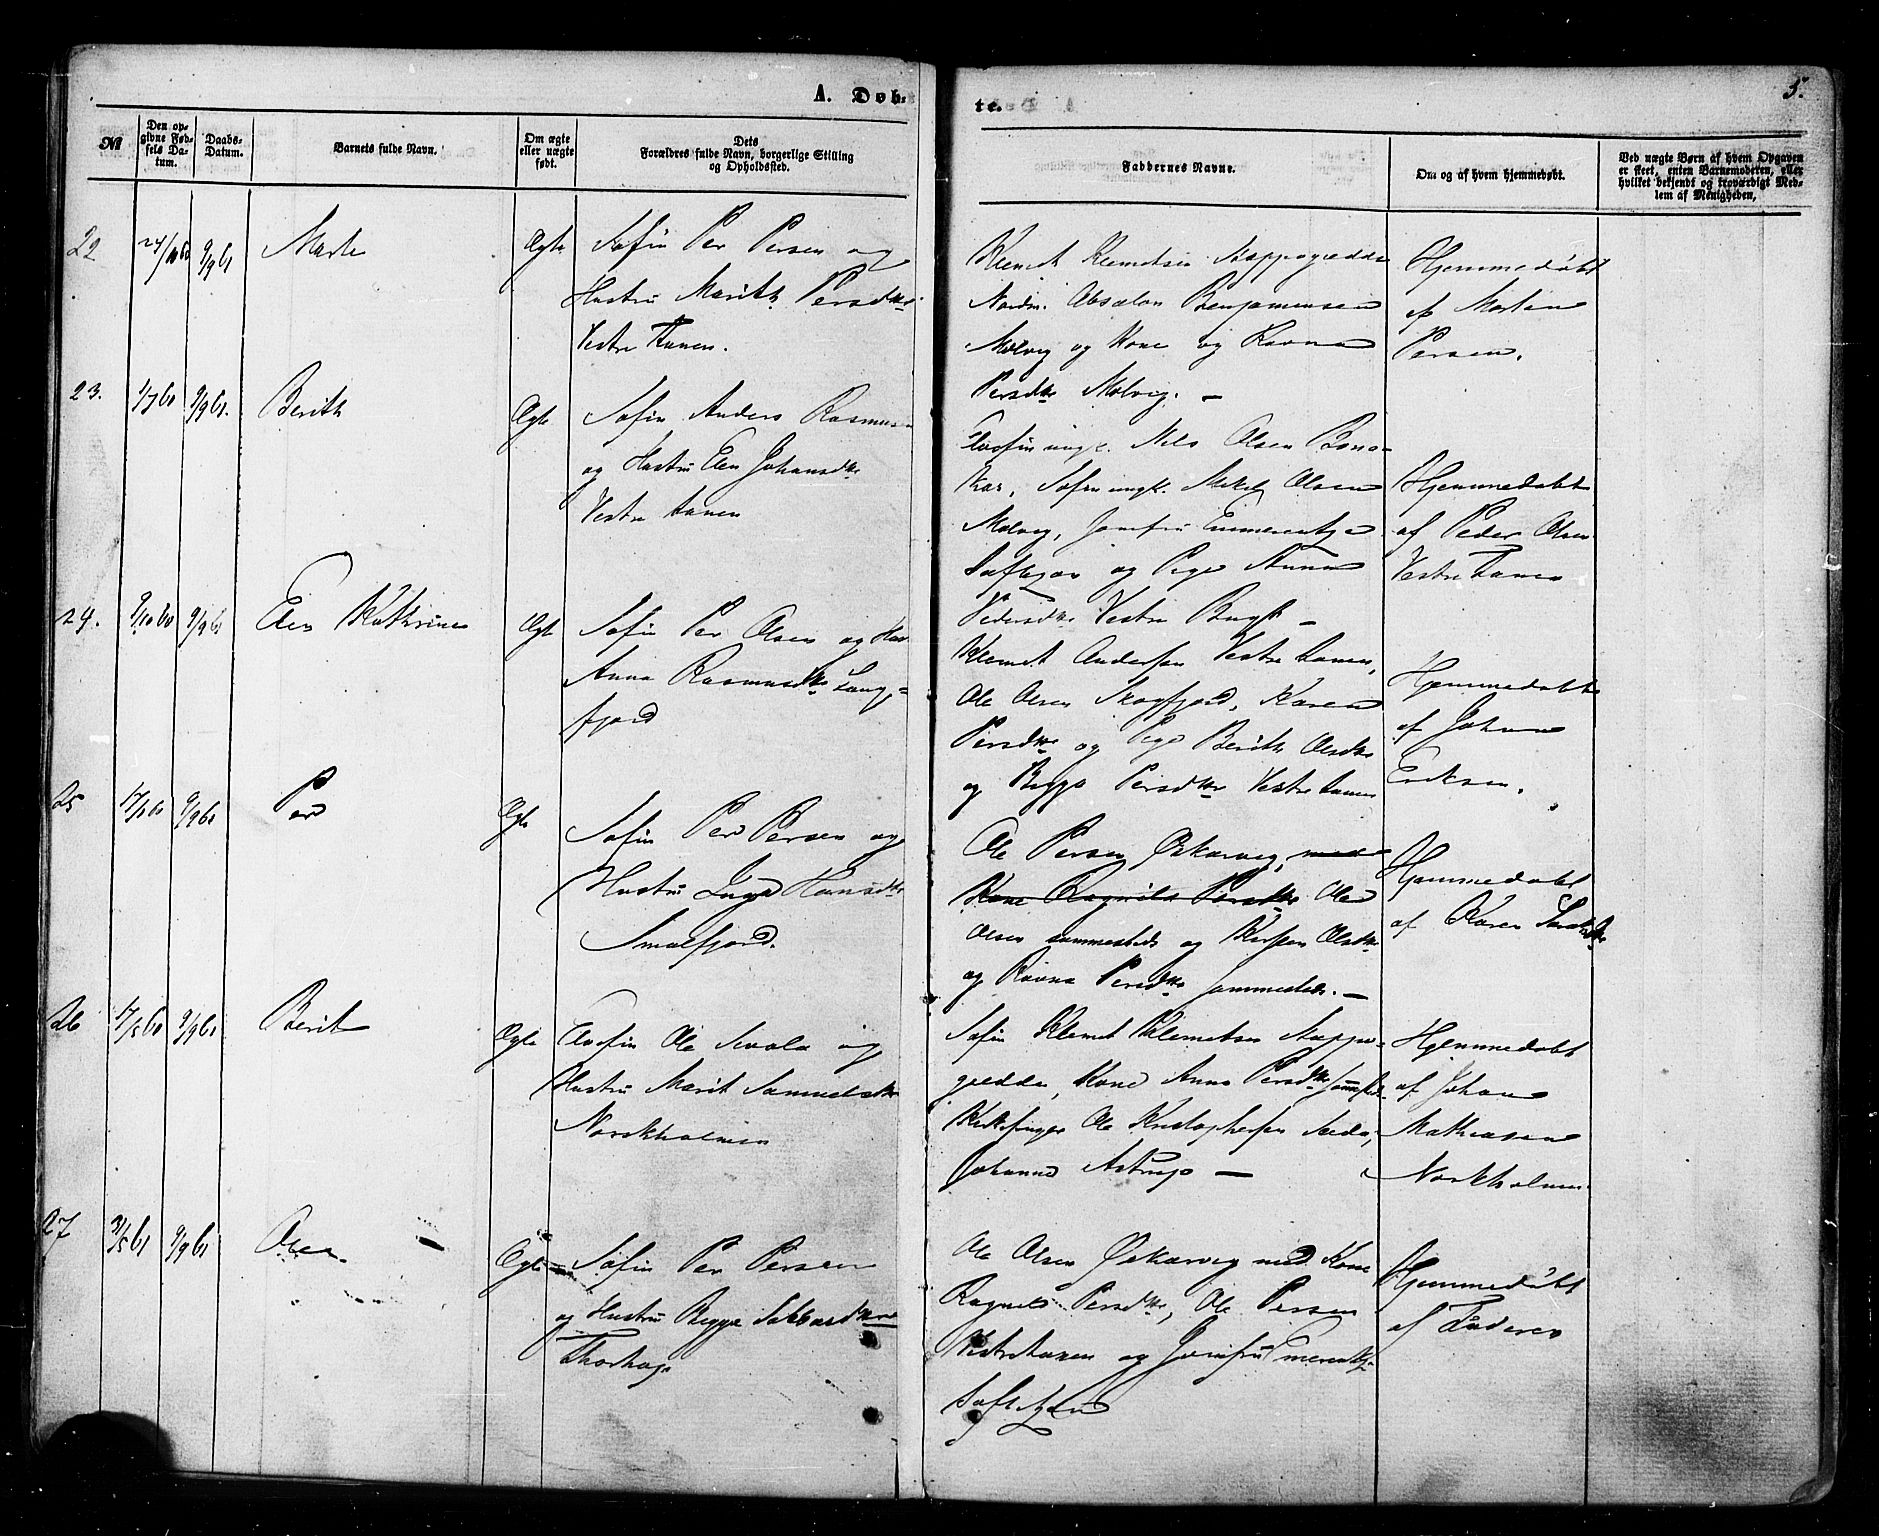 A. Døb-
te.
5.
№
Den op-
givne Fød-
sels Da-
tum.
Daabs-
Datum.
Barnets fulde Navn.
Om ægte
eller uægte
født.
Dets
Forældres fulde Navn, borgerlige Stilling
og Opholdssted.
Faddernes Navne.
Om og af hvem hjemmedøbt.
Ved uægte Børn af hvem Opgaven
er skeet, enten Barnemoderen, eller
hvilket bekjendt og troværdigt Med-
lem af Menigheden,
22
9/9 61
Marit
Ægte
Søfin Per Persen og
Hustru Marith Persdtr
Vestre Tanen.
Klemet Klemetsen Stappogiedde
Nordm. Absalon Benjaminsen
Molvig og Kone og Ravna
Persdtr Molvig. —
Hjemmedøbt
af Morten
Persen.
23.
1/7 61
9/9 61.
Berith
Ægte
Søfin Anders Rasmusen
og Hustru Elen Johansdtr
Vestre Tanen
Elvefin ungk. Nils Olsen Bono-
kas, Søfin ungk. Mikel Olsen
Molvig, Jomfru Emmerentze
og Pige Anna
Pedersdtr Vestre
Hjemmedøbt
af Peder Olsen
Vestre Tanen
24.
9/10 60
9/9 61
Elen Kathrine
Ægte
Søfin Per Olsen og Hus
Anna Rasmusdtr Lang-
fjord
Klemet Andersen Vestre Tanen,
Ole Olsen Skogfjord, Karen
Persdtr og Pige Berith Olsdtr
og Bigge Persdtr Vestre Tanen
Hjemmedøbt
af Johan
Eriksen.
25
9/9 61
Per
Ægte
Søfin Per Persen og
Hustru Inga Hansdtr
Smalfjord.
Ole Persen Øskarvig, med
Kone Ragnild Persdtr Ole
Olsen sammesteds og Kirsten Olsdtr
og Ravna Persdtr sammesteds. —
Hjemmedøbt
af Karen
26
17/5 61
9/9 61
Berit
Ægte
Elvefin Ole og
Hustru Marit Samuelsdtr
Norskholmen
Søfin Klemet Klemetsen Stappo-
giedde, Kone Anna Persdtr
Kirkesanger Ole Kristophersen
Johanne Astrup —
Hjemmedøbt
af Johan
Mathiasen
Norskholmen
27
3/5 61
9/9 61
Ægte
Søfin Per Persen
og Hustru Bigge
Ole Olsen Øskarvig med Kone
Ragnild Persdtr, Ole Persen
Vestretanen og Jomfru Emerentze
Hjemmedøbt
af Faderen